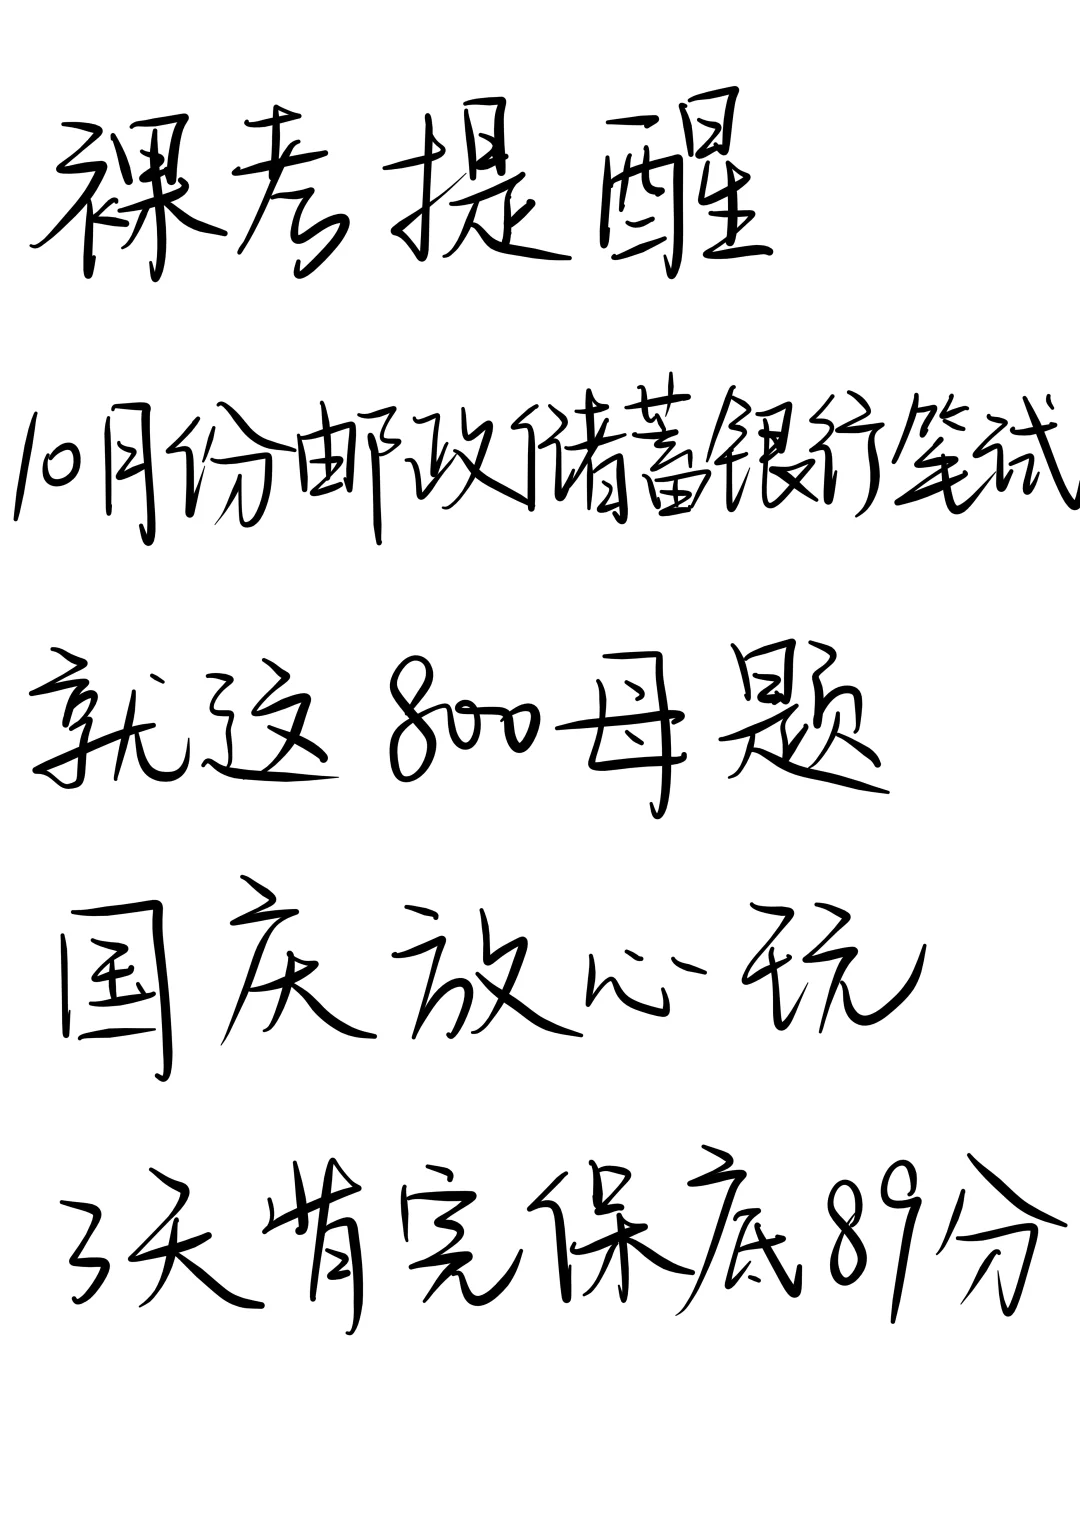 裸考提醒
10月份邮政储蓄银行笔试
就这800母题
国庆放心玩
3天背完保底89分